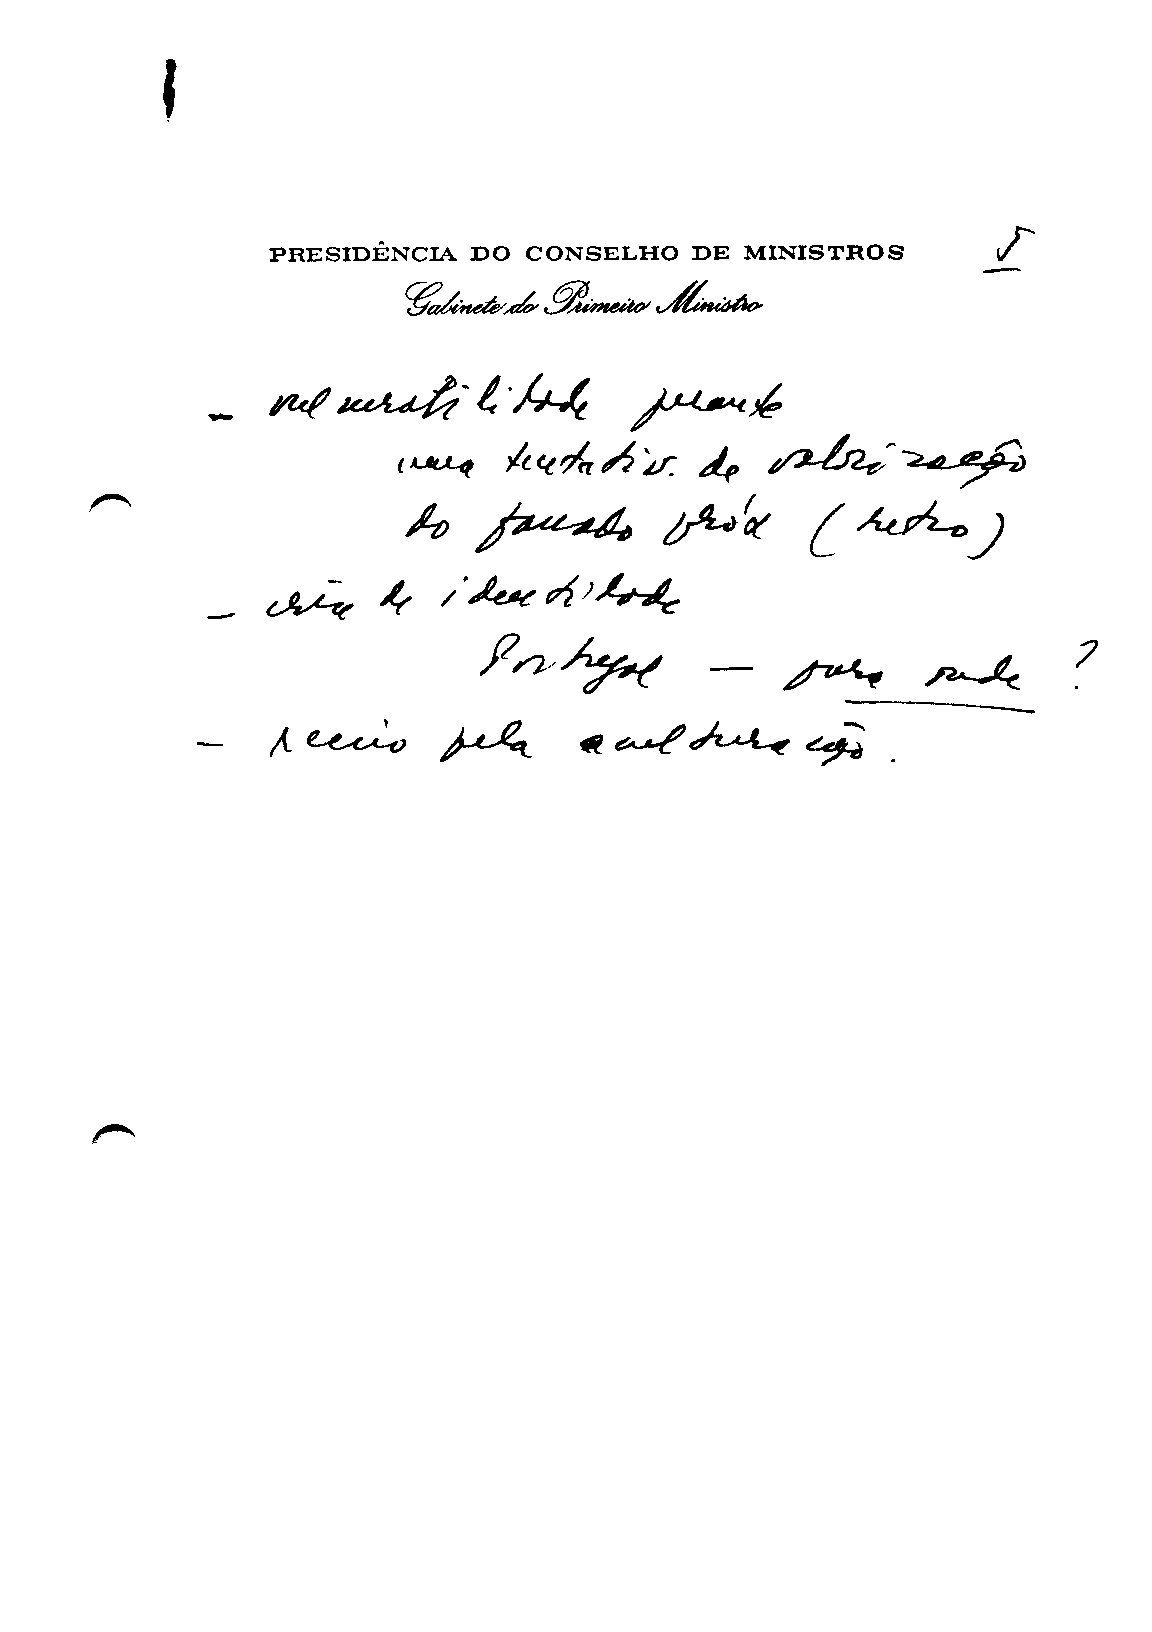 PRESIDÊNCIA DO CONSELHO DE MINISTROS
5
Gabinete do Primeiro Ministro
- vulnerabilidade perante
uma tentativ. de valorização
do passado (retro)
- crise de identidade
Portugal — para onde ?
- receio pela aculturação.